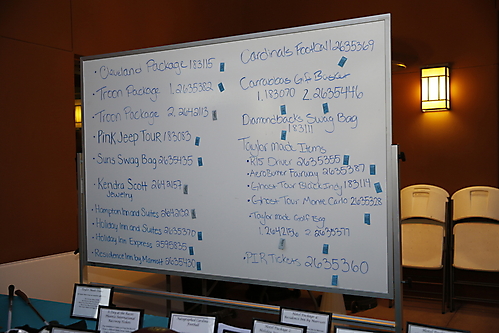 • Cleveland Package 183115
• Troon Package 1. 2635382
Troon Package 2. 2642113
• Pink Jeep Tour 183083
• Suns Swag Bag 2635435
• Kendra Scott 2642157
Jewelry
• Hampton Inn and Suites 2642132
• Holiday Inn and Suites 2635370
• Holiday Inn Express 2595835
• Residence Inn by Marriott 2635420
Cardinals Football 2635369
Carrabbas Gift Basket
1. 183070 2. 2635446
Diamondbacks Swag Bag
183111
Taylor Made Items
• RIS Driver 2635355
• AeroBurner Fairway 2635387
• Ghost Tour Black Indy 183114
• Ghost Tour Monte Carlo 2635328
• Taylor Made Golf Bag
1. 2642136 2. 2635377
• PIR Tickets 2635360